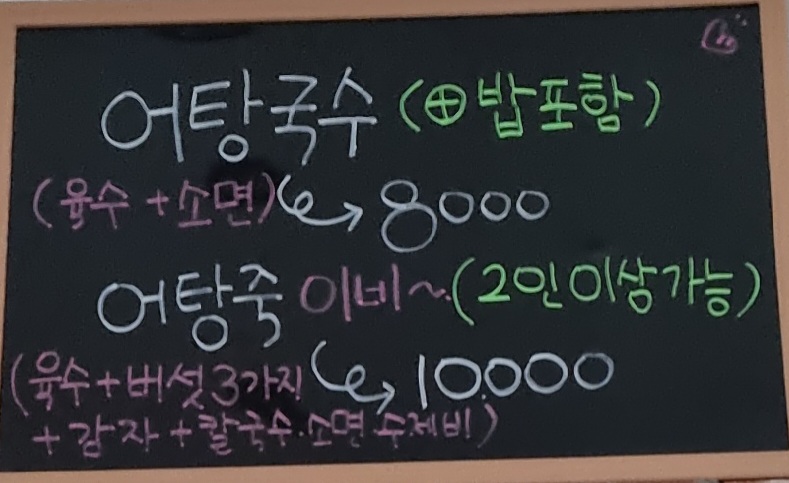 어탕국수 (⊕밥포함)
(육수+소면) 8000
어탕죽 이비~(2인이상가능)
(육수+버섯3가지 10.000
+감자+칼국수.소면 수제비)